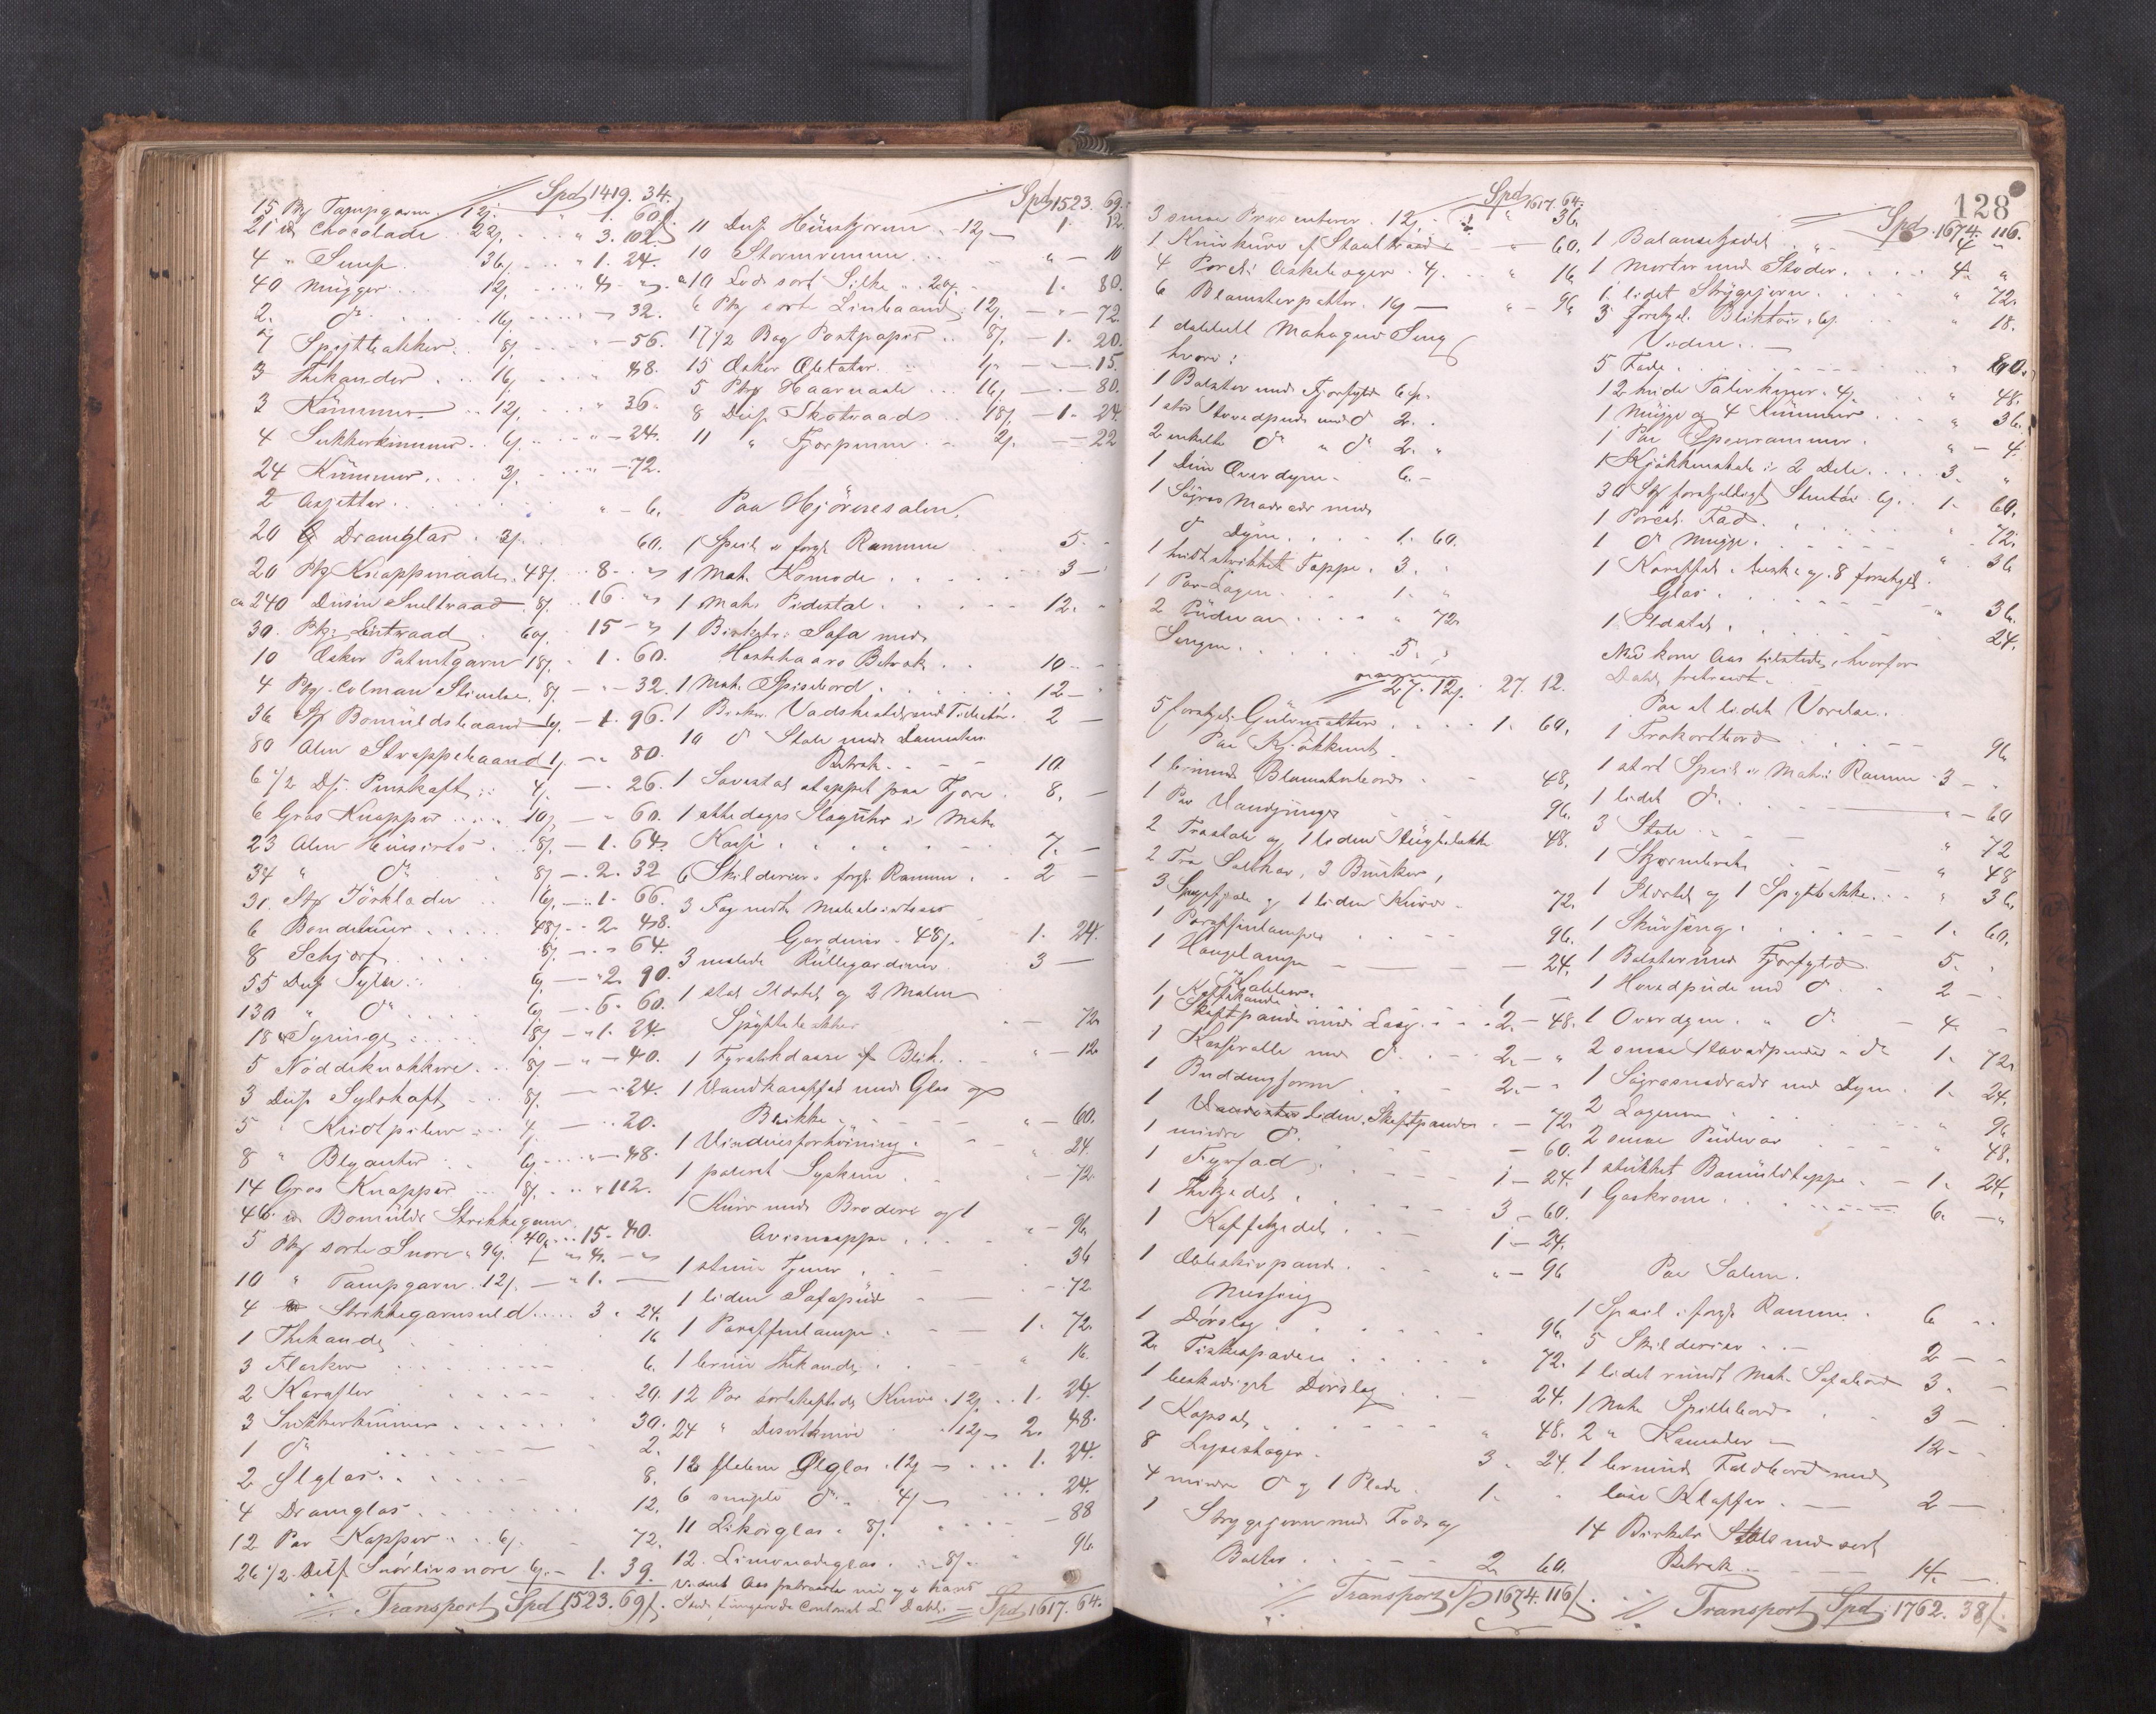 Spd 1419. 34.
15 Pkg Tampgarn 12ſ. " 1. 60.
21 ℔ Chocolade 22ſ. " 3. 102.
4 " Senep 36ſ. " 1. 24.
40 Mugger 12ſ. 4 "
2 do 16ſ. 32.
7 Spyttbakker 8ſ. 56.
3 Thekander 16ſ. 48.
3 Kummer 12ſ. 36.
4 Sukkerkummer 6ſ. 24.
24 Kummer 3ſ. 72.
2 Asjetter " 6.
20 Dramglas 3ſ. 60.
20 Pkg Knappenaale 48ſ. 8 "
ca 240 Dusin Sneltraad 8ſ. 16 "
30 Pk. Lintraad 60ſ. 15 "
10 Æsker Patentgarn 18ſ. 1. 60.
4 Pkg. Colman Stivelse 8ſ. 32.
36 St Bomuldsbaand 6ſ. 1. 96.
80 Alen Strappebaand 1ſ. 80.
6 1/2 Ds. Penskaft 4ſ. 26.
6 Gros Knapper 10ſ. 60.
23 Alen Huusirts 8ſ. 1. 64.
34 " do 8ſ. 2. 32
31 Stk Törklæder 6ſ. 1. 66.
6 Bondeluer 48ſ. 2. 48.
8 Schjerf 8ſ. 64.
55 Dus Syler 6ſ. 2. 90.
130 " do 6ſ. 6. 60.
18 Syringe 8ſ. 1. 24.
5 Nöddeknækkere 8ſ. 40.
3 Dus Sylskaft 8ſ. 24.
5 " Kridtpiber 4ſ. 20.
8 " Blyanter 6ſ. 48.
14 Gros Knapper 8ſ. 112.
46 ℔ Bomulds Strikkegarn 40ſ. 15. 40.
5 Pkg sorte Snore 96ſ. 4.
10 " Tampgarn 12ſ. 1.
4 Strikkegarnsuld 3. 24.
1 Thekande 16
3 Flasker 6.
2 Karafler 20.
3 Sukkerkummer 30.
1 do 2.
2 Ølglas 8.
4 Dramglas 12.
12 Par Kopper 6ſ. 72.
26 1/2 Dus Snörlivsnore 6ſ. 1. 39.
Transport Spd 1523. 69ſ.
Spd 1523. 69.
11 Dus Huuskjerner 12ſ. 1. 12.
10 Stormremme " 10
10 Lod sort Silke 20ſ. 1. 80.
6 Pkg sorte Linbaand 12ſ. 72
17 1/2 Bog Postpapir 8ſ. 1. 20.
15 Æsker Oblater 1ſ. 15.
5 Pkg Haarnaale 16ſ. 80.
8 Dus Skotraad 18ſ. 1. 24.
11 " 2ſ. 22
Paa Hjörnesalen.
1 Speil i forgt Ramme 5.
1 Mah. Komode 3
1 Mah. Pidestal 12.
1 Birketr. Safa med
Hestehaars Betræk 10
1 Mah. Spisebord 12
1 Birker. Vadskebord med Tilbehör 2
10 do Stole med Damaskes
Betræk 10
1 Lænestol stoppet paa Fjære 8.
1 ottedages Slaguhr i Mah.
Kasse 7.
6 Skilderier i forgt Ramme 2
3 Fag
Gardiner 48ſ. 1. 24.
3 malede Rullegardiner 3
1 stol Ildsted og 2 Malm
Spyttebakker 72
1 Fyrstikdaase af Blik 12
1 Vandkaraffel med Glas og
Bakke 60.
1 Vinduesforhöining 24.
1 poleret Syskrin 72
1 Kurv med Broderi og 1
Avismappe 96
36
1 liden Safapude 72
1 Paraffinlampe 1. 72.
1 brun Thekande 16.
12 Par sortskaftede Knive 12ſ. 1. 24.
24 " Desertknive 12ſ. 2. 48.
12 slebne Ølglas 12ſ. 1. 24.
6 simple do 4ſ. 24.
11 Likörglas 8ſ. 88
12 Limonadeglas 8ſ. 96
Vidnet Aas fratraadte nu og i hans
Sted fungerede Contorist L. Dahl. Spd 1617. 64.
Spd 1617. 64.
3 smaa Præsenterer 12ſ. " 36.
1 Knivkurv af Staaltraad 60.
4 Porcl. Askebæger 4ſ. 16
6 Blomsterpotter 16ſ. 96
1 dobbelt Mahogni Seng
hvori:
1 Bolster med Fjærfyld 6.
1 stor Hovedpude med do 2.
2 enkelte do " do 2. "
1 Duun Overdyne 6.
1 Sögræs Madrads med
do Dyne 1. 60.
1 hvidt strikket Teppe 3.
1 Par Lagen 1. "
2 Pudevar " 72
Sengen 5. "
27. 12ſ. 27. 12.
5 forskjel. Gulvmatter 1. 60.
Paa Kjökkenet.
1 brunt Blomsterbord 48.
1 Par Vandspringer 96.
2 Træstole og 1 liden 48.
2 Træ Saltkar, 3 Brikker,
3 og 1 liden Kurv 72.
1 Paraffinlampe 96.
1 Hængelampe 24.
Kobber.
1 Kaffekande 1
1 Skaftpande med Laag 2. 48.
1 Kasserolle med do 2. "
1 Buddingform 2.
1 liden Skaftpande 72
1 mindre do 60.
1 Fyrfad 1 24.
1 Thekjedel 3 60.
1 Kaffekjedel 1 24.
1 Æbleskivpande " 96
Messing
1 Dörslag 96.
2 Fiskespader 72.
1 beskadiget Dörslag 24.
1 Kopsat 48.
8 Lysestager 3. 24.
4 mindre do og 1 Plade 1.
1 Strygejern med Fod og
Bolter 2 60.
Transport Sp 1674. 116ſ.
128
Spd. 1674. 116.
1 Balansekjedel 4 "
1 Morter med Stöder 4 "
1 lidet Strygejern 72.
3 forskjel. Bliktöi 6ſ. 18.
Videre.
5 Fade 80.
12 hvide Talerkener 4ſ. 48.
1 Mugge og 4 Kummer 36.
1 Par 4.
1 Kjökkenskab i 2 Dele 3. "
30 Stk forskjelligt Stentöi 6ſ. 1. 60.
1 Porcel. Fad 72.
1 do Mugge 36
1 Karaffel, og 8 forskjel.
Glas 36.
1 Ildsted 24.
Nu kom Aas tilstede, hvorfor
Dahl fratraadte.
Paa et lidet Værelse.
1 Trækortbord 96
1 stort Speil i Mah. Ramme 3
1 lidet do 60
3 Stole 72
1 48
1 Ildsted og 1 Spyttbakke 36.
1 1. 60.
1 Bolster med Fjærfyld 5.
1 Hovedpude med do 2
1 Overdyne " do 4.
2 smaa Hovedpuder " do 1. 72
1 Sögræsmadrads med Dyne 1. 24.
2 Lagener 96
2 smaa Pudevar 48.
1 strikket Bomuldsteppe 1. 24.
1 Gaskrone 6.
Paa Salen.
1 Speil i forgt Ramme 6
5 Skilderier 2
1 lidet rundt Mah. Safabord 3.
1 Mah. Spillebord 3
2 " Komoder 12
1 brunt Foldbord med
löse Klapper 2
14 Birketr. Stole med sort
Betræk 14.
Transport Spd. 1762. 38ſ.